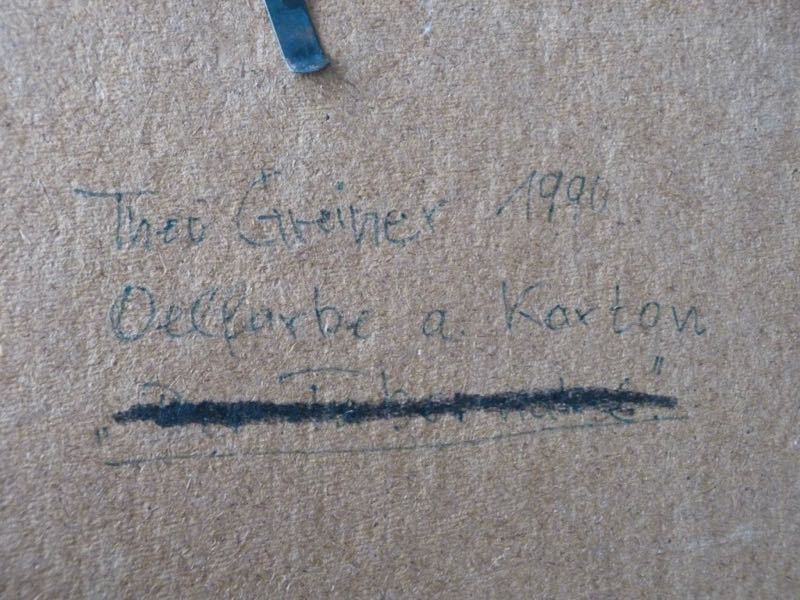 Theo Greiner 1990
Oelfarbe a. Karton